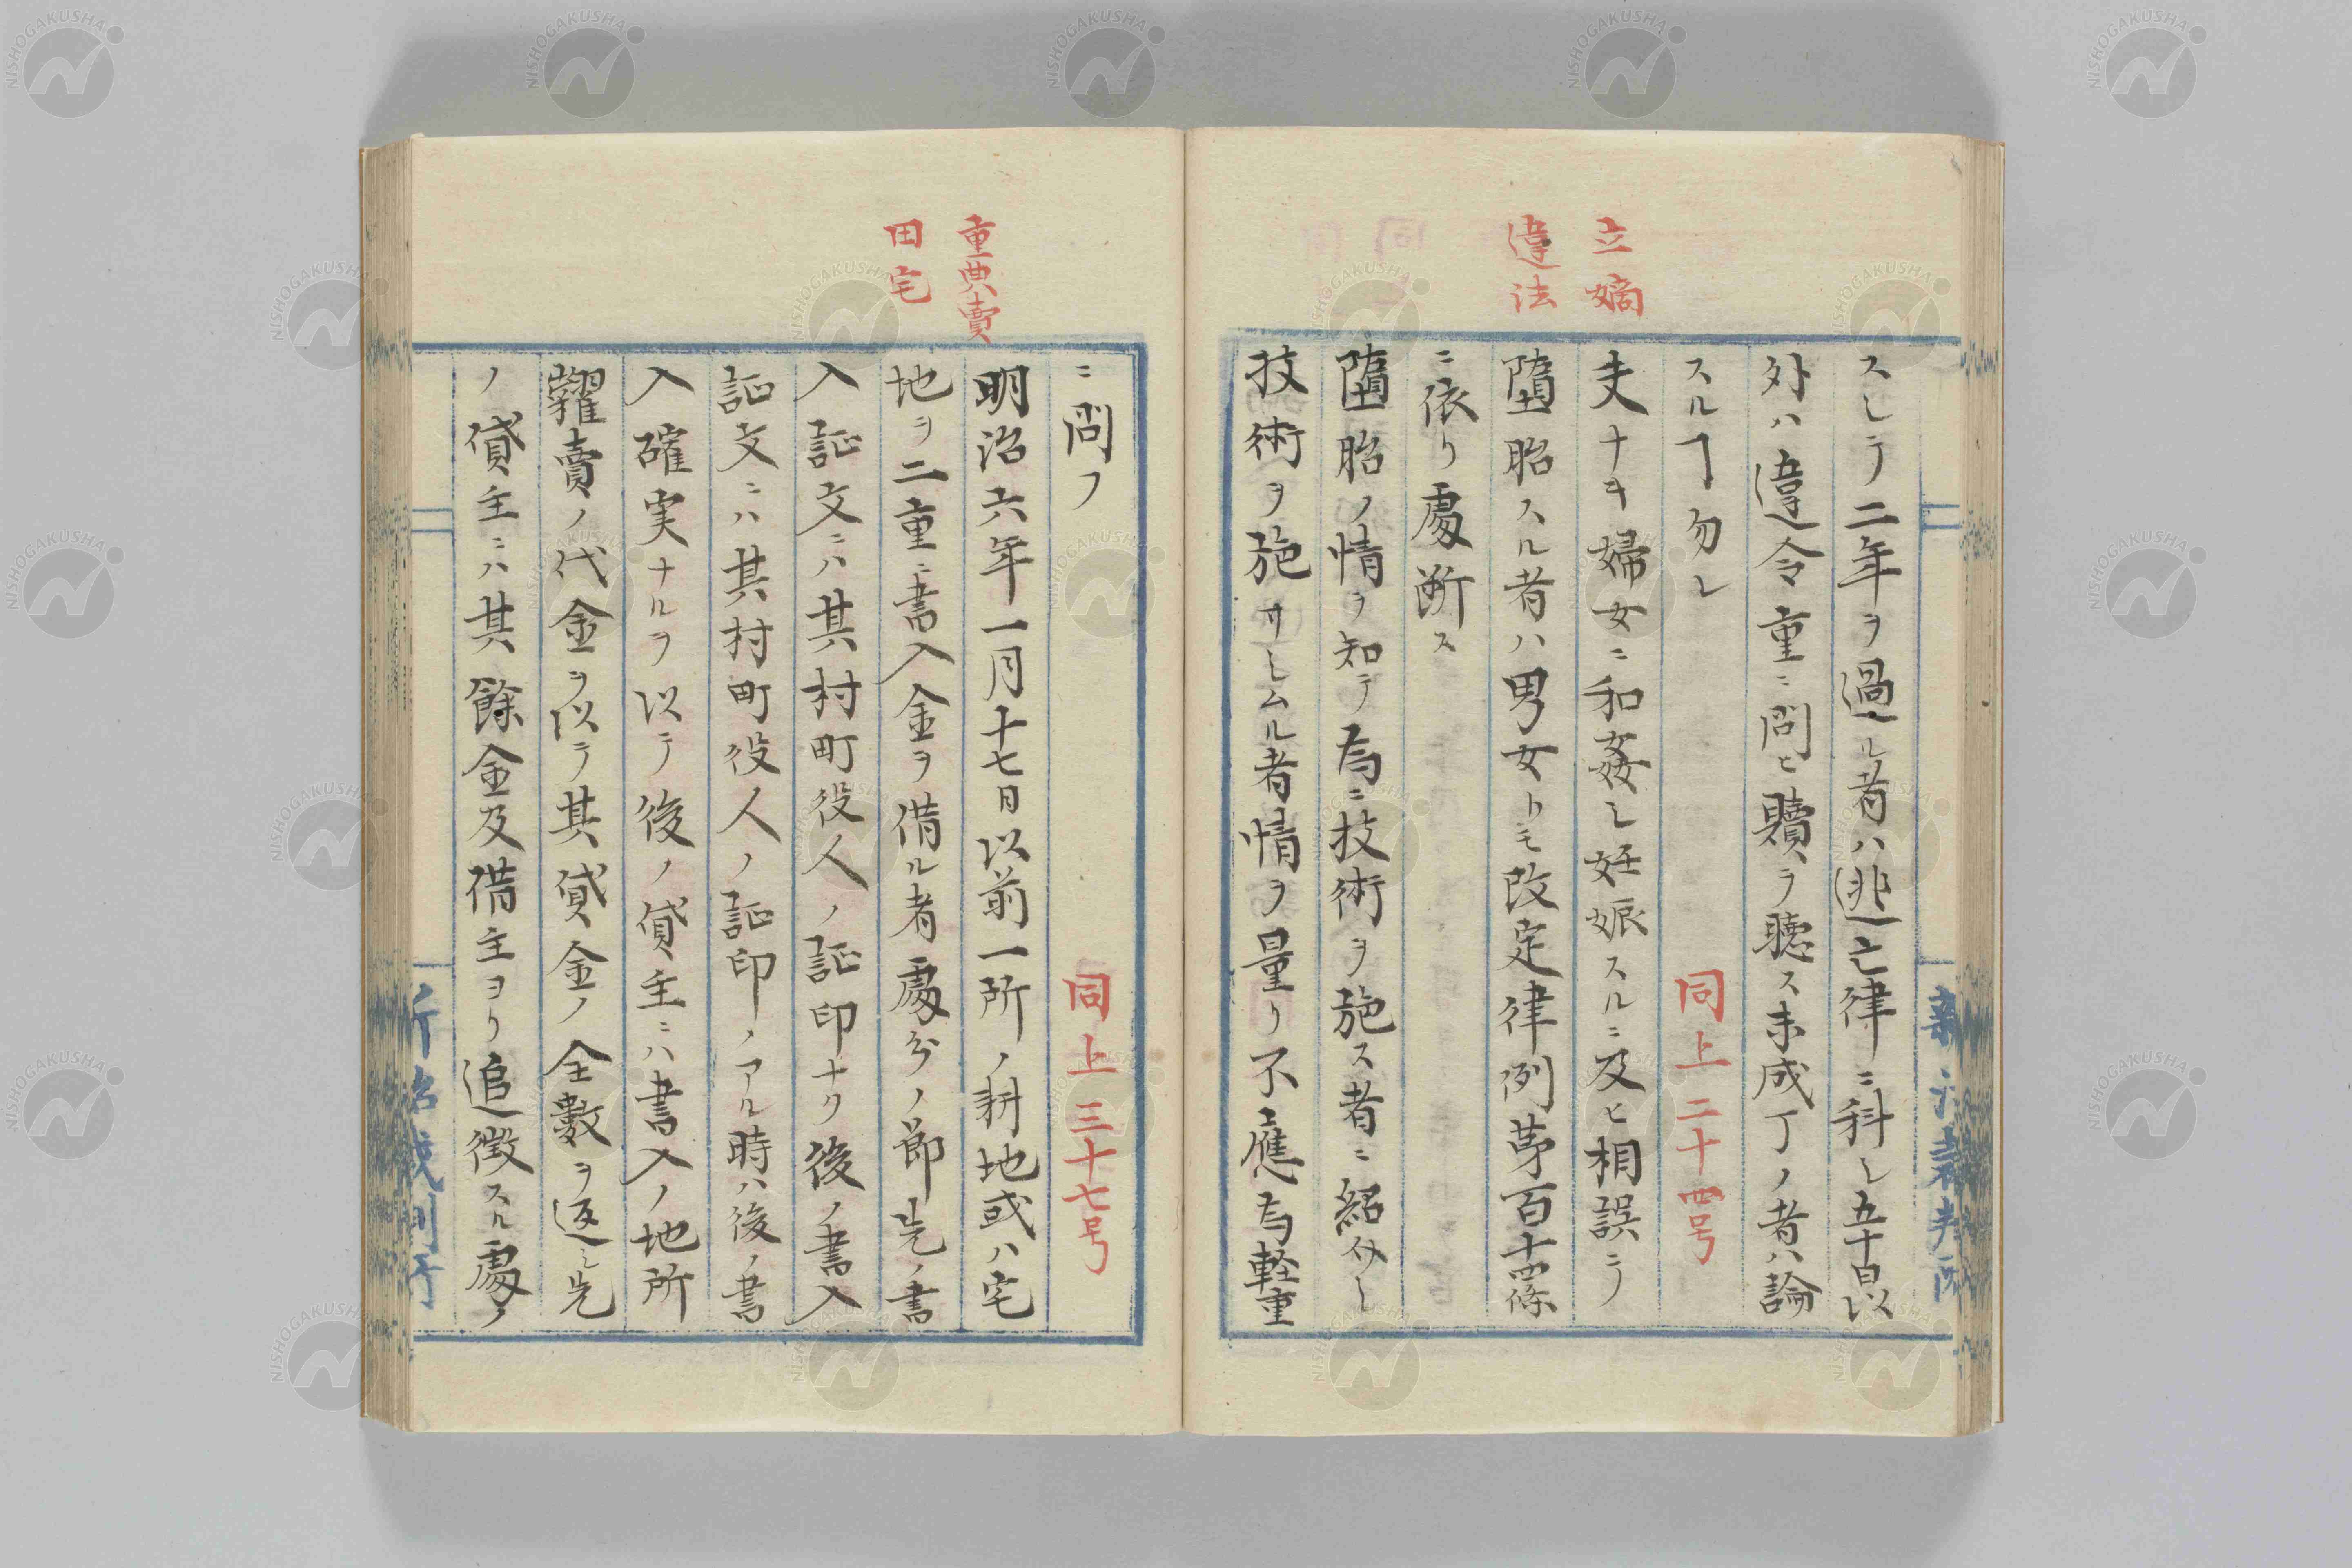 立嫡
違法
スシテ二年ヲ過ル者ハ逃亡律ニ科シ五十日以
外ハ違令重ニ問ヒ贖ヲ聴ス未成丁ノ者ハ論
スルヿ勿レ
同上二十四号
夫ナキ婦女ニ和姦シ妊娠スルニ及ヒ相誤ニテ
堕胎スル者ハ男女トモ改定律例第百十四条
ニ依リ處断ス
堕胎ノ情ヲ知テ為ニ技術ヲ施ス者ニ紹介シ
技術ヲ施サシムル者情ヲ量リ不應為軽重
重典賣
田宅
ニ問フ
同上三十七号
明治六年一月十七日以前一所ノ耕地或ハ宅
地ヲ二重ニ書入金ヲ借ル者處分ノ節先ノ書
入証文ニハ其村町役人ノ証印ナク後ノ書入
証文ニハ其村町役人ノ証印ノアル時ハ後ノ書
入確実ナルヲ以テ後ノ貸主ニハ書入ノ地所
糶賣ノ代金ヲ以テ其貸金ノ全數ヲ返シ先
ノ貸主ニハ其餘金及借主ヨリ追徴スル處ノ
新治裁判所
NISHOGAKUSHA